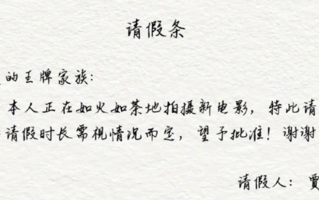 请假条
的王牌家族：
本人正在如火如荼地拍摄新电影，特此请
请假时长需视情况而定，望予批准！谢谢
请假人：贾